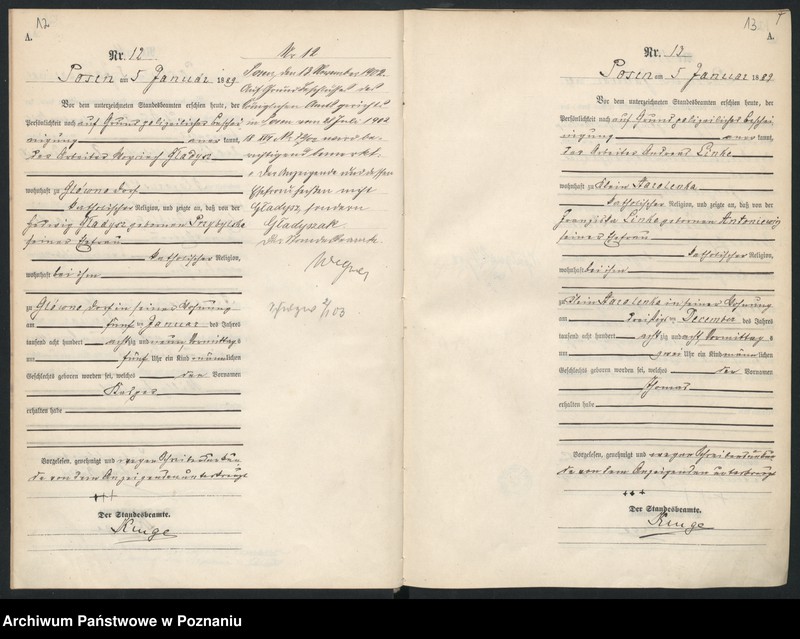 12
A.
Nr. 12
Posen am 5 Januar 1889
Vor dem unterzeichneten Standesbeamten erschien heute, der
Persönlichkeit nach auf Grund polizeilicher Beschei
nigung kannt,
der Arbeiter Gladysz
wohnhaft zu Glówno Dorf
katholischer Religion, und zeigte an, daß von der
Hedwig Gladysz geborenen
seiner Ehefrau
katholischer Religion,
wohnhaft bei ihm
zu Glówno Dorf in seiner Wohnung
am fünften Januar des Jahres
tausend acht hundert achtzig und neun, Vormittags
um fünf Uhr ein Kind männlichen
Geschlechts geboren worden sei, welches den Vornamen
Kasper
erhalten habe
Vorgelesen, genehmigt und wegen Schreibensunkun
de von dem Anzeigenden unterkreuzt
+++
Der Standesbeamte.
Kruge
Nr 12
Posen, den 13 November 1902.
Auf Grund Beschlusses des
königlichen Amtsgerichts
in Posen vom 21 Juli 1902
wird be
richtigend bemerkt,
der Anzeigende und dessen
Ehefrau heißen nicht
Gladysz, sondern
Gladyszak.
Der Standesbeamte
13
A.
Nr. 13
Posen am 5 Januar 1889
Vor dem unterzeichneten Standesbeamten erschien heute, der
Persönlichkeit nach auf Grund polizeilicher Beschei
nigung kannt,
der Arbeiter Andreas Linke
wohnhaft zu Klein Starolenka
katholischer Religion, und zeigte an, daß von der
Franziska Linke geborenen Antoniewicz
seiner Ehefrau
katholischer Religion,
wohnhaft bei ihm
zu Klein Starolenka in seiner Wohnung
am dreißigsten December des Jahres
tausend acht hundert achtzig und acht, Vormittags
um zwei Uhr ein Kind männlichen
Geschlechts geboren worden sei, welches den Vornamen
Thomas
erhalten habe
Vorgelesen, genehmigt und wegen Schreibensunkun
de von dem Anzeigenden unterkreuzt
+++
Der Standesbeamte.
Kruge
Archiwum Państwowe w Poznaniu